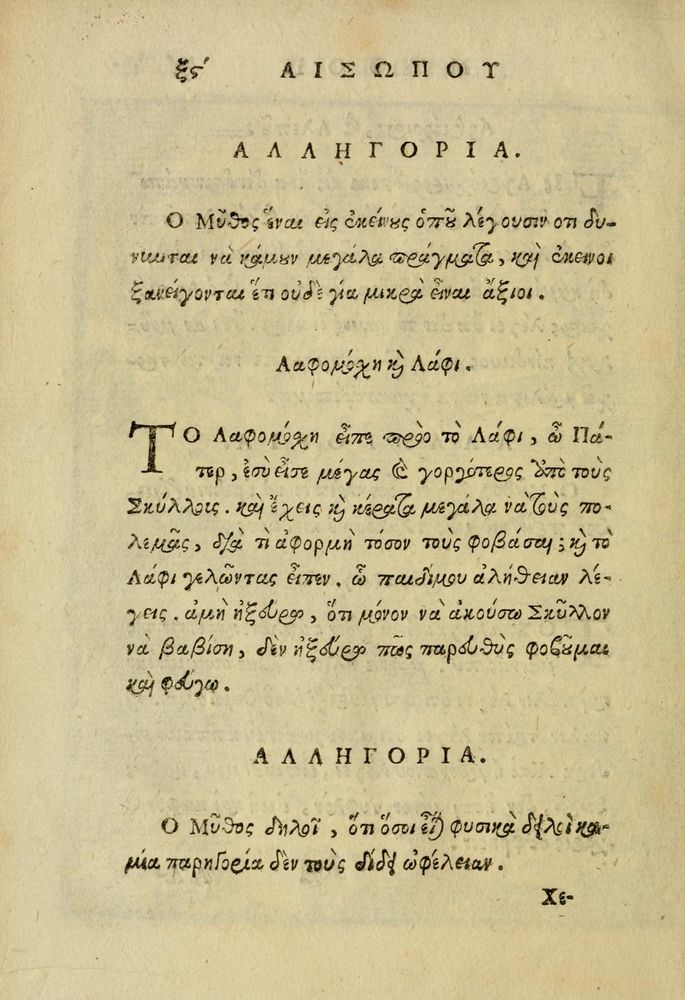 ξϛʹ ΑΙΣΩΠΟΥ
ΑΛΛΗΓΟΡΙΑ.
Ο Μῦθος ἔναι εἰς ἐκείνους ὁποῦ λέγουσιν οτι δύ-
νωνται νὰ κάμουν μεγάλα πράγματα, καὶ ἐκεινοι
ξανείγονται ἔτι οὐδὲ γία μικρὰ εἶναι ἄξιοι.
Λαφομόχη κὶ Λάφι.
ΤΟ Λαφομόχη εἶπε πρὸ το Λάφι, ὦ Πά-
τερ, ἐσὺ εἶσε μέγας καὶ γοργότερος ὑπὸ τοὺς
Σκύλλοις. καὶ ἔχεις κὶ κέρατα μεγάλα νὰ τοὺς πο-
λεμᾶς, διὰ τὶ ἀφορμὴ τόσον τοὺς φοβάσαι; κὶ τὸ
Λάφι γελῶντας εἶπεν. ὦ παιδίμου ἀλήθειαν λέ-
γεις. ἀμὴ ἠξεύρω, ὅτι μόνον νὰ ἀκούσω Σκῦλλον
νὰ βαβίση, δὲν ἠξεύρω πῶς παρευθὺς φοβοῦμαι
καὶ φεύγω.
ΑΛΛΗΓΟΡΙΑ.
Ο Μῦθος δηλοῖ, ὅτι ὅσοι εἶναι φυσικὰ δειλοὶ κα-
μία παρηγορία δὲν τοὺς δίδει ὠφέλειαν.
Χε-